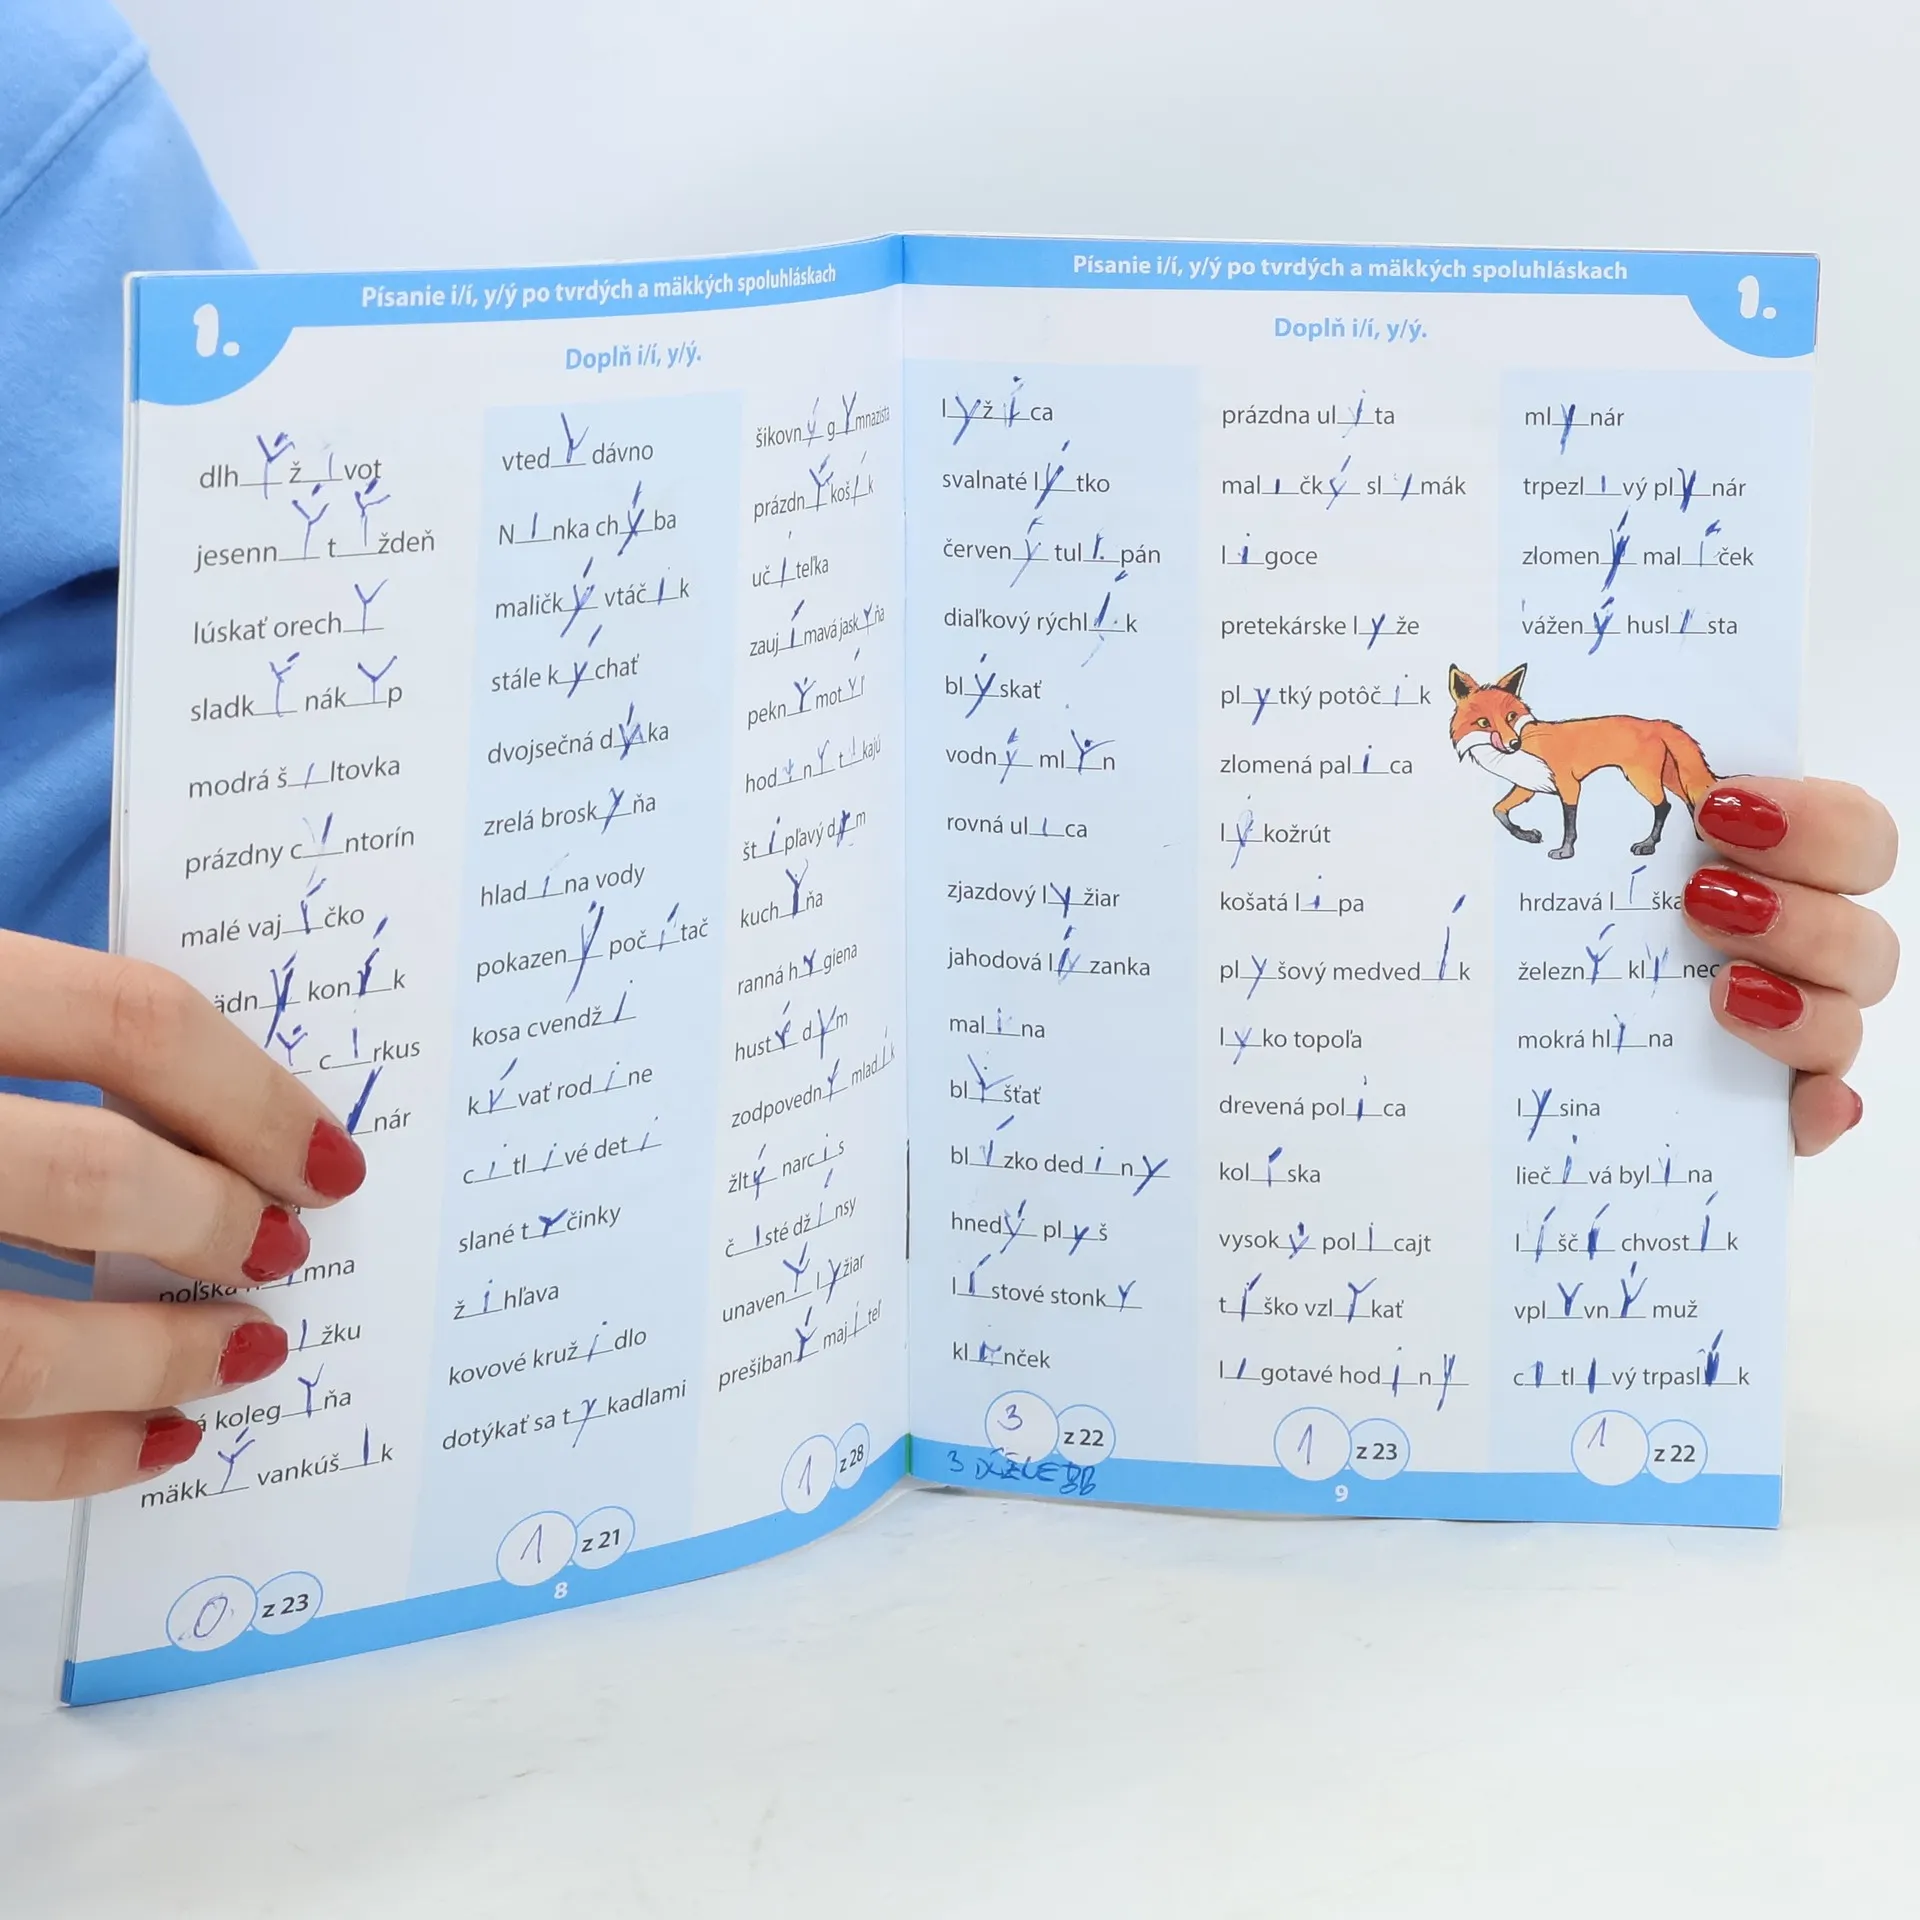 1.
Písanie i/í, y/ý po tvrdých a mäkkých spoluhláskach
Doplň i/í, y/ý.
dlhý život
jesenný týždeň
lúskať orechy
sladký nákyp
modrá šiltovka
prázdny cintorín
malé vajíčko
koník
cirkus
nár
mna
žku
kolegyňa
mäkký vankúšik
0 z 23
vtedy dávno
Ninka chýba
maličký vtáčik
stále kýchať
dvojsečná dýka
zrelá broskyňa
hladina vody
pokazený počítač
kosa cvendži
kývať rodine
citlivé deti
slané tyčinky
žihľava
kovové kružidlo
dotýkať sa tykadlami
1 z 21
8
šikovný gymnazista
prázdny košík
učiteľka
zaujímavá jaskyňa
pekný motýľ
hodiny tikajú
štipľavý dym
kuchyňa
ranná hygiena
hustý dym
zodpovedný mladík
žltý narcis
čisté džínsy
unavený lyžiar
prešibaný majiteľ
1 z 28
Písanie i/í, y/ý po tvrdých a mäkkých spoluhláskach
1.
Doplň i/í, y/ý.
lyžica
svalnaté lýtko
červený tulipán
diaľkový rýchlik
blýskať
vodný mlyn
rovná ulica
zjazdový lyžiar
jahodová lízanka
malina
blyšťať
blízko dediny
hnedý plyš
lístové stonky
klinček
3 z 22
3
prázdna ulita
maličký slimák
ligoce
pretekárske lyže
plytký potôčik
zlomená palica
lykožrút
košatá lipa
plyšový medvedík
lyko topoľa
drevená polica
kolíska
vysoký policajt
tíško vzlykať
ligotavé hodiny
1 z 23
9
mlynár
trpezlivý plynár
zlomený malíček
vážený huslista
hrdzavá líška
železný klinec
mokrá hlina
lysina
liečivá bylina
líščí chvostík
vplyvný muž
citlivý trpaslík
1 z 22